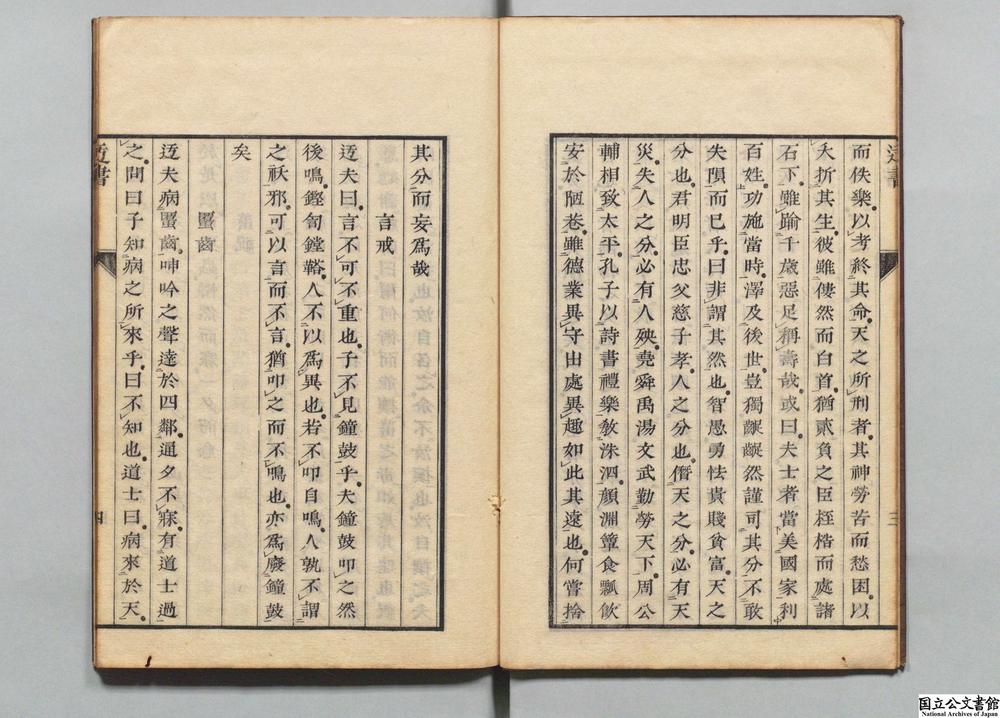 而佚樂以考終其命天之所刑者其神勞苦而愁困以
夭折其生彼雖僂然而白首猶貳負之臣桎梏而處諸
石下雖踰千歲惡足稱壽哉或曰夫士者當美國家利
百姓功施當時澤及後世豈獨齪齪然謹司其分不敢
失隕而已乎曰非謂其然也智愚勇怯貴賤貧富天之
分也君明臣忠父慈子孝人之分也僭天之分必有天
災失人之分必有人殃堯舜禹湯文武勤勞天下周公
輔相致太平孔子以詩書禮樂教洙泗顏淵簞食瓢飲
安於陋巷雖德業異守出處異趣如此其遠也何嘗捨
其分而妄爲哉
言戒
迃夫曰言不可不重也子不見鐘鼓乎夫鐘鼓叩之然
後鳴鏗訇鏜鞳人不以爲異也若不叩自鳴人孰不謂
之祅邪可以言而不言猶叩之而不鳴也亦爲廢鐘鼓
矣
𧕏齒
迃夫病𧕏齒呻吟之聲達於四鄰通夕不寐有道士過
之問曰子知病之所來乎曰不知也道士曰病來於天
迃書
三
四
国立公文書館
National Archives of Japan